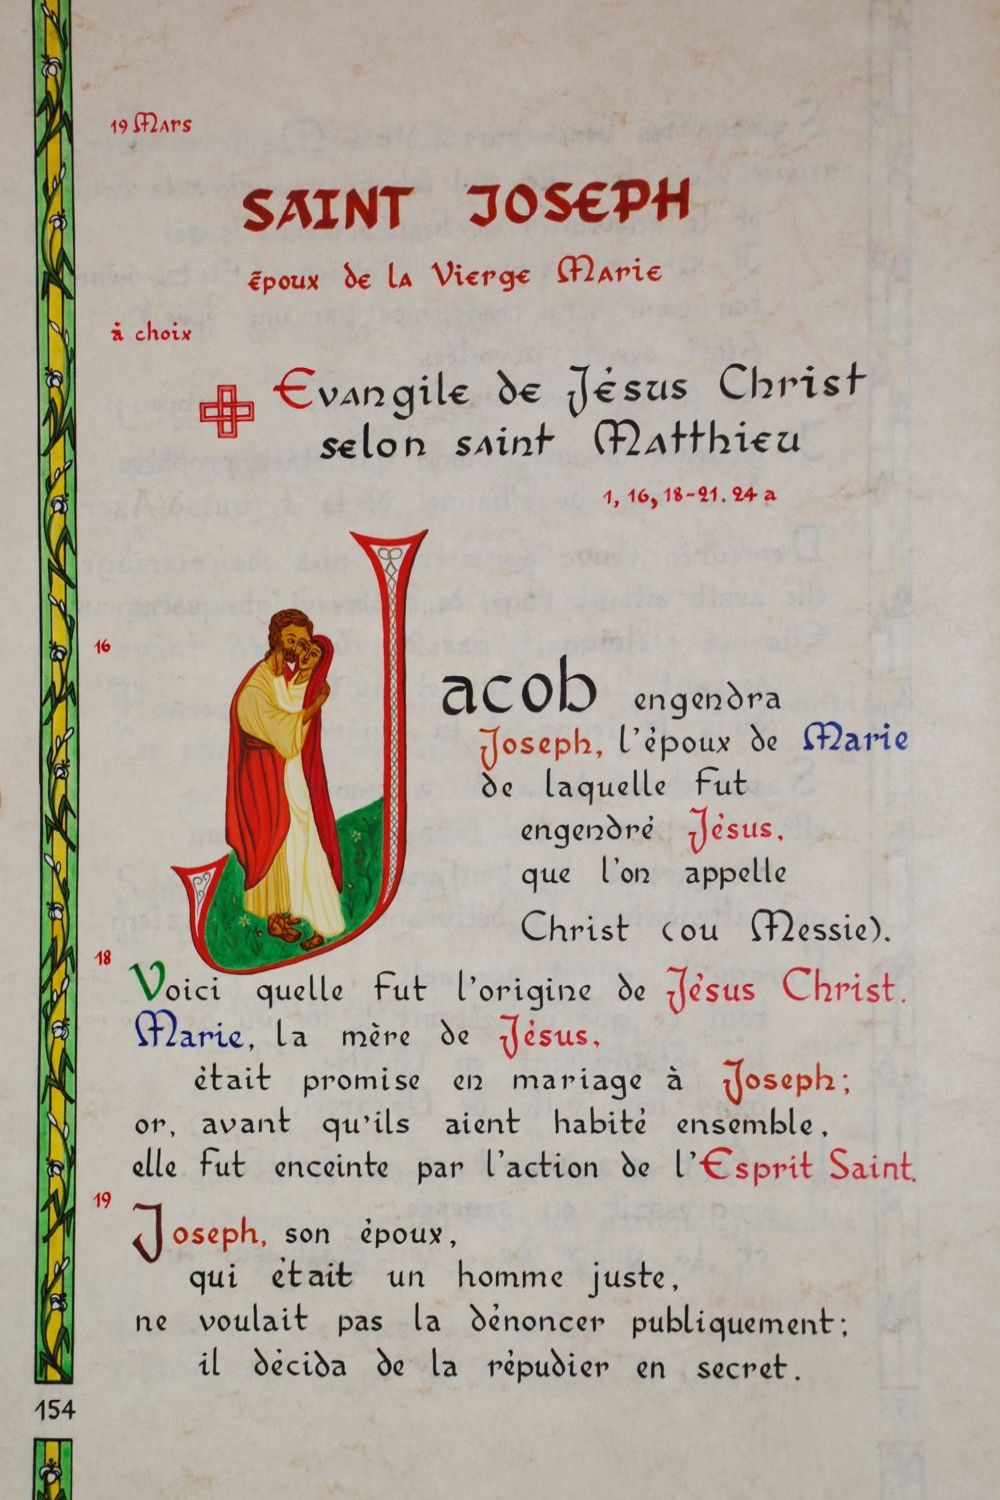 19 Mars
SAINT JOSEPH
époux de la Vierge Marie
à choix
Evangile de Jésus Christ
selon saint Matthieu
1, 16, 18-21. 24 a
16
Jacob engendra
Joseph, l'époux de Marie
de laquelle fut
engendré Jésus,
que l'on appelle
Christ (ou Messie).
18
Voici quelle fut l'origine de Jésus Christ.
Marie, la mère de Jésus,
était promise en mariage à Joseph;
or, avant qu'ils aient habité ensemble,
elle fut enceinte par l'action de l'Esprit Saint.
19
Joseph, son époux,
qui était un homme juste,
ne voulait pas la dénoncer publiquement;
il décida de la répudier en secret.
154